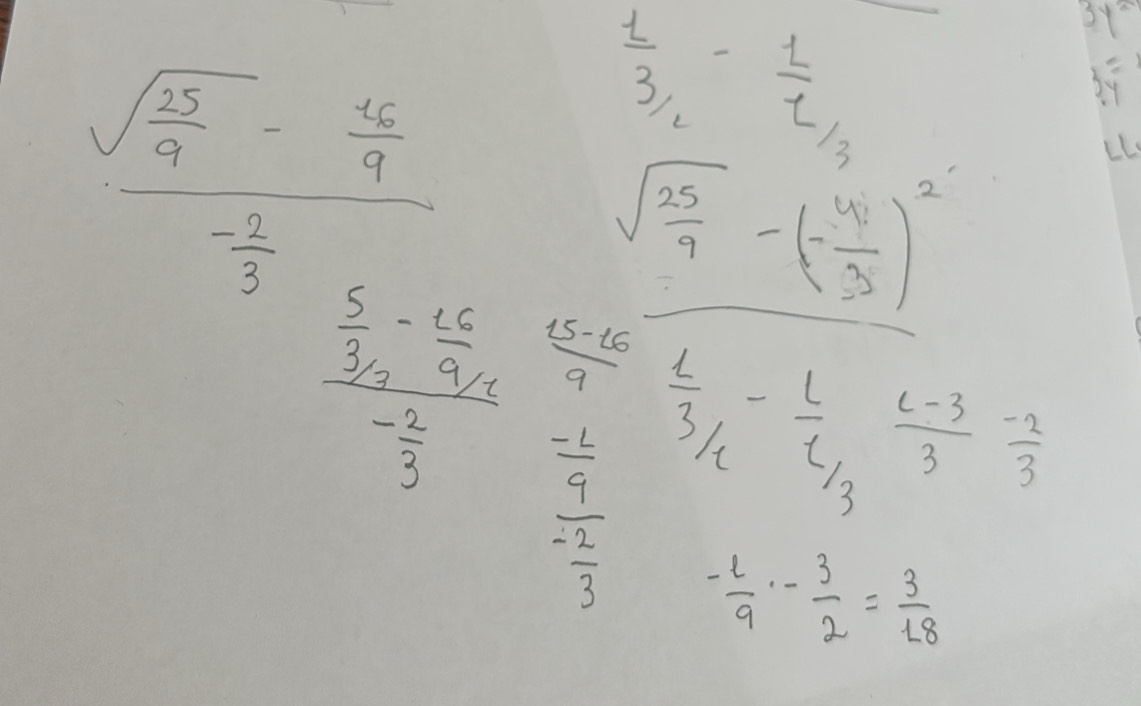 \frac{1}{3/1} - \frac{1}{1/3}
\frac{\sqrt{\frac{25}{9}} - \frac{16}{9}}{-\frac{2}{3}}
\frac{\sqrt{\frac{25}{9}} - \left(-\frac{4}{3}\right)^2}{\frac{1}{3/1} - \frac{1}{1/3}}
\frac{1-3}{3} \frac{-2}{3}
\frac{\frac{5}{3/3} - \frac{16}{9/1}}{-\frac{2}{3}}
\frac{15-16}{9}
\frac{\frac{-1}{9}}{-\frac{2}{3}}
\frac{-1}{9} \cdot - \frac{3}{2} = \frac{3}{18}